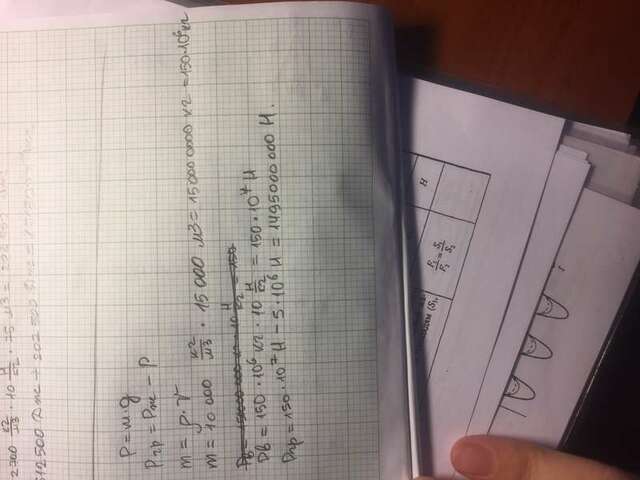 2700 кг/м3 · 10 Н/кг · 75 м3 =
512500 Дж + 202500 Дж =
P = m·g
Pгр = Pж − P
m = ρ·V
m = 10 000 кг/м3 · 15 000 м3 = 150000000 кг = 150·10⁶ кг
Pв = 150 · 10⁶ кг · 10 Н/кг = 150 · 10⁷ Н
Pпр = 150 · 10⁷ Н − 5 · 10⁶ Н = 1495000000 Н.
(S₁,
F₁/F₂ = S₁/S₂
Н